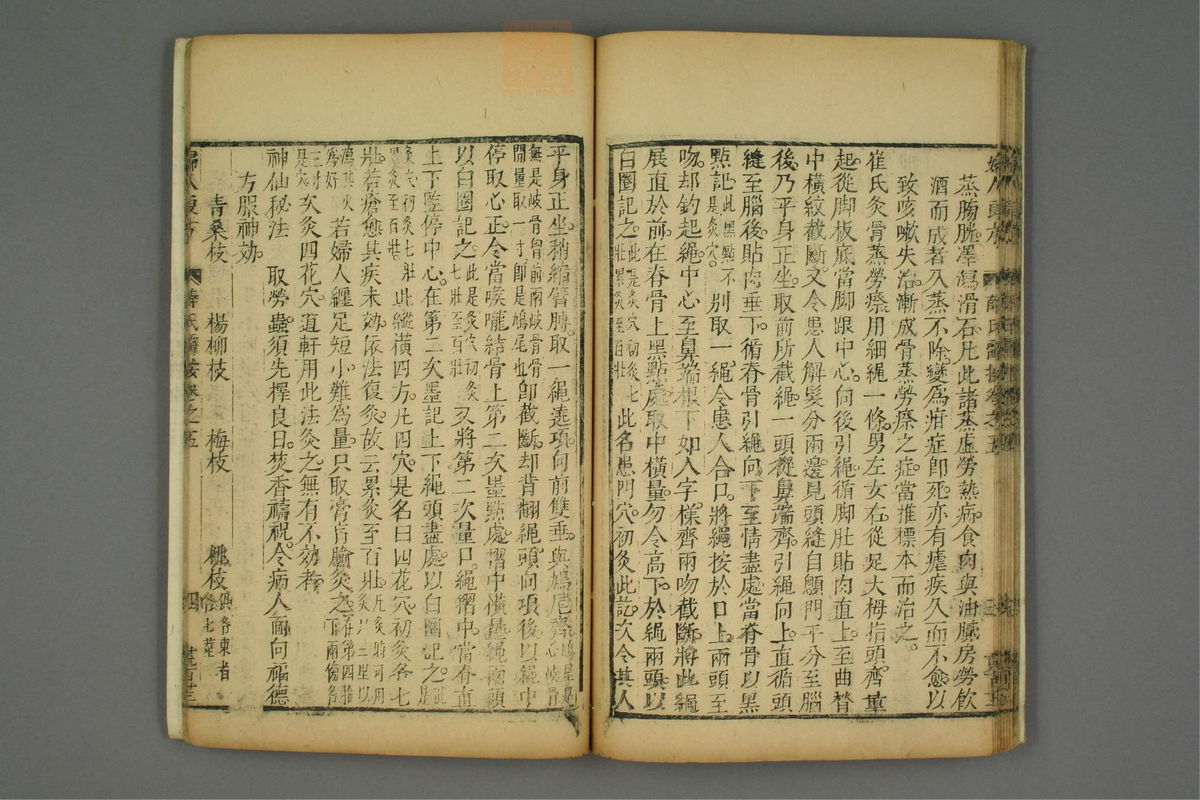 蒸胞膀胱澤瀉滑石凡此諸蒸虛勞熱病食肉與油膩房勞飲
酒而成者久蒸不除變為疳症即死亦有瘧疾久而不愈以
致咳嗽失治漸成骨蒸勞瘵之症當推標本而治之
崔氏灸骨蒸勞瘵用細繩一條男左女右從足大拇指頭齊量
起從脚板底當脚跟中心向後引繩循脚肚貼肉直上至曲䐐
中橫紋截斷又令患人解髮分兩邊見頭縫自顖門平分至腦
後乃平身正坐取前所截繩一頭從鼻端齊引繩向上直循頭
縫至腦後貼肉垂下循脊骨引繩向下至情盡處當脊骨以黑
點記此黑點不是灸穴別取一繩令患人合口將繩按於口上兩頭至
吻却鈎起繩中心至鼻端根下如人字樣齊兩吻截斷將此繩
展直於前在脊骨上黑點處取中橫量勿令高下於繩兩頭以
白圈記之此是灸穴初灸七壯累灸至百壯此名患門穴初灸此訖次令其人
平身正坐稍縮臂膊取一繩遶項向前雙垂與鳩尾齊鳩尾是心岐骨
無是岐骨胸前兩岐骨開量取一寸即是鳩尾也即截斷却背翻繩頭向項後以繩中
停取心正令當喉嚨結骨上第二次墨點處摺中橫量繩兩頭
以白圈記之此是灸穴初灸七壯至百壯又將第二次量口繩摺中當脊直
上下竪停中心在第二次墨記上下繩頭盡處以白圈記之此是
灸穴初灸七壯累灸至百壯此縱橫四方凡四穴是名曰四花穴初灸各七
壯若瘡愈其疾未効依法復灸故云累灸至百壯
若婦人纏足短小難為量只取膏肓腧灸之
次灸四花穴道軒用此法灸之無有不効者
神仙秘法　取勞蟲須先擇良日焚香禱祝令病人面向福德
方服神効
青桑枝　楊柳枝　梅枝　桃枝俱各東者各七莖